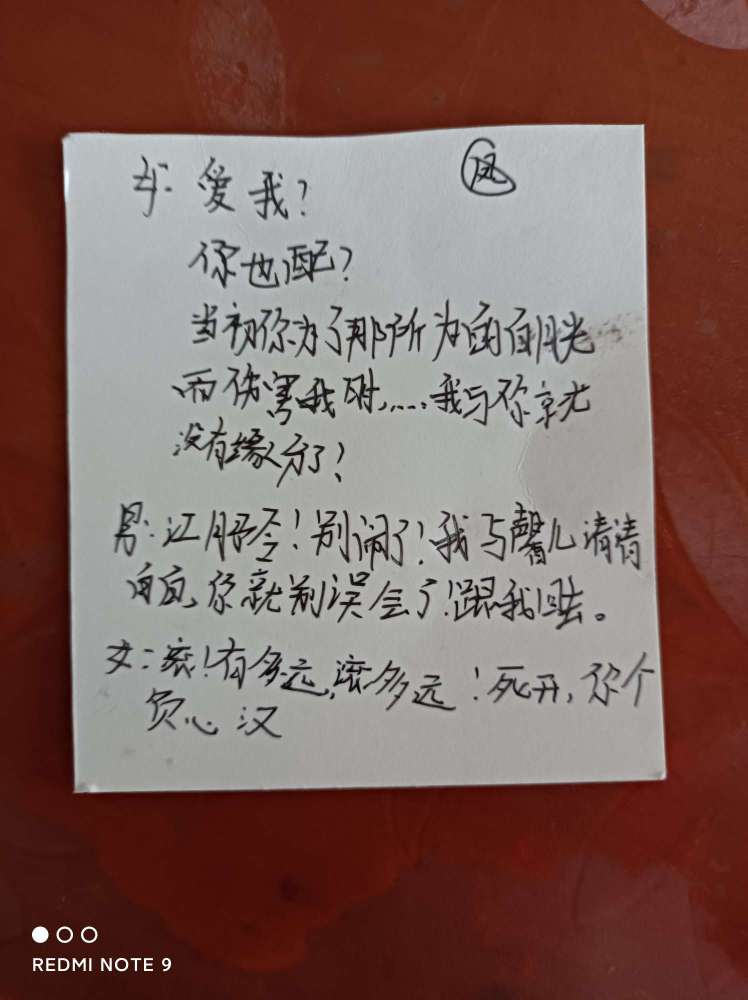 凤
女：爱我？
你也配？
当初你为了那所为的白月光
而伤害我时,....我与你就
没有缘分了！
男：江月令！别闹了！我与馨儿清清
白白，你就别误会了！跟我回去。
女：滚！有多远，滚多远！死开，你个
负心汉
REDMI NOTE 9